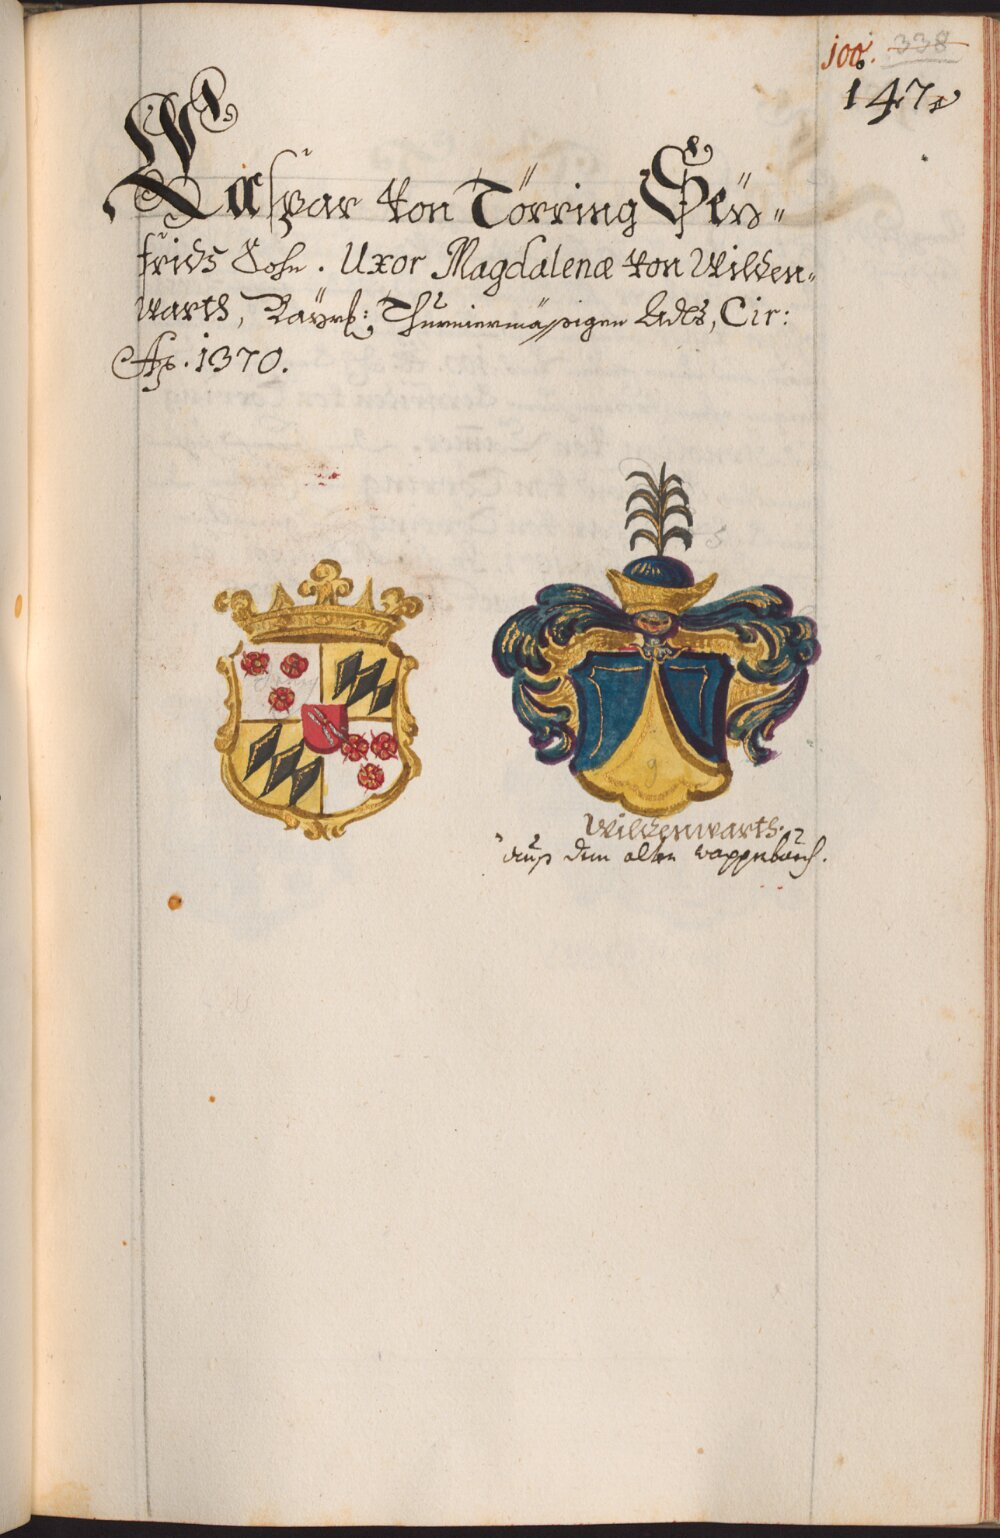 100. 338
147
Caspar von Törring Seÿ-
frids Sohn. Uxor Magdalenæ von Wilden-
warth, Baÿrl: Thurniermässigen Adls, Cir:
Aō. 1370.
g
Wildenwarth.
auß dem alten wappenbuch.